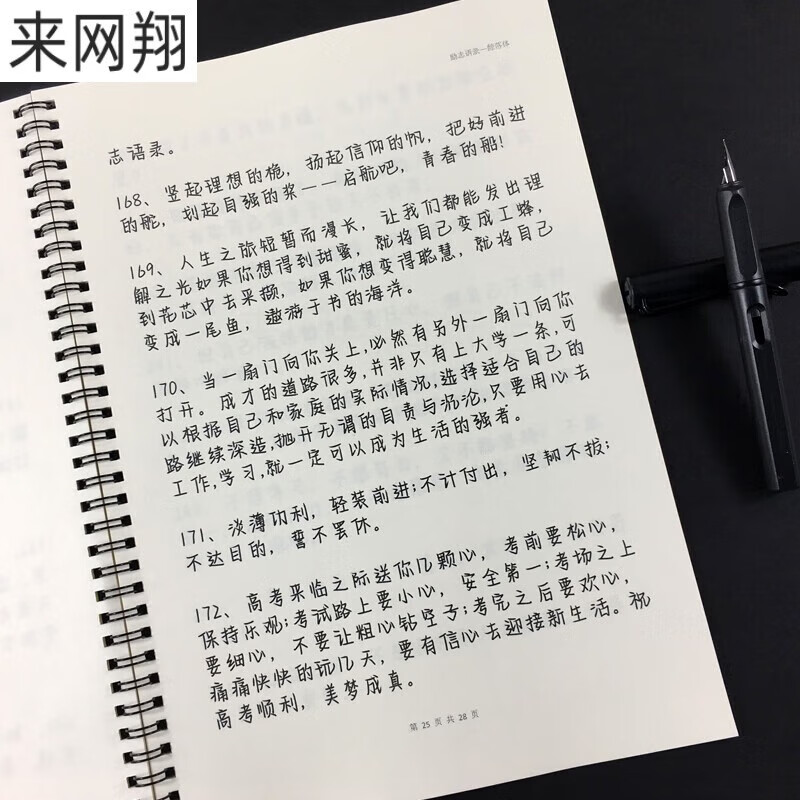 来网翔
励志语录—鲸落体
志语录。
168、竖起理想的桅，扬起信仰的帆，把好前进
的舵，划起自强的桨——启航吧，青春的船！
169、人生之旅短暂而漫长，让我们都能发出理
解之光如果你想得到甜蜜，就将自己变成工蜂，
到花芯中去采撷，如果你想变得聪慧，就将自己
变成一尾鱼，遨游于书的海洋。
170、当一扇门向你关上，必然有另外一扇门向你
打开。成才的道路很多，并非只有上大学一条，可
以根据自己和家庭的实际情况，选择适合自己的
路继续深造，抛开无谓的自责与沉沦，只要用心去
工作，学习，就一定可以成为生活的强者。
171、淡薄功利，轻装前进；不计付出，坚韧不拔；
不达目的，誓不罢休。
172、高考来临之际送你几颗心，考前要松心，
保持乐观；考试路上要小心，安全第一；考场之上
要细心，不要让粗心钻空子；考完之后要欢心，
痛痛快快的玩几天，要有信心去迎接新生活。祝
高考顺利，美梦成真。
第 25 页 共 28 页